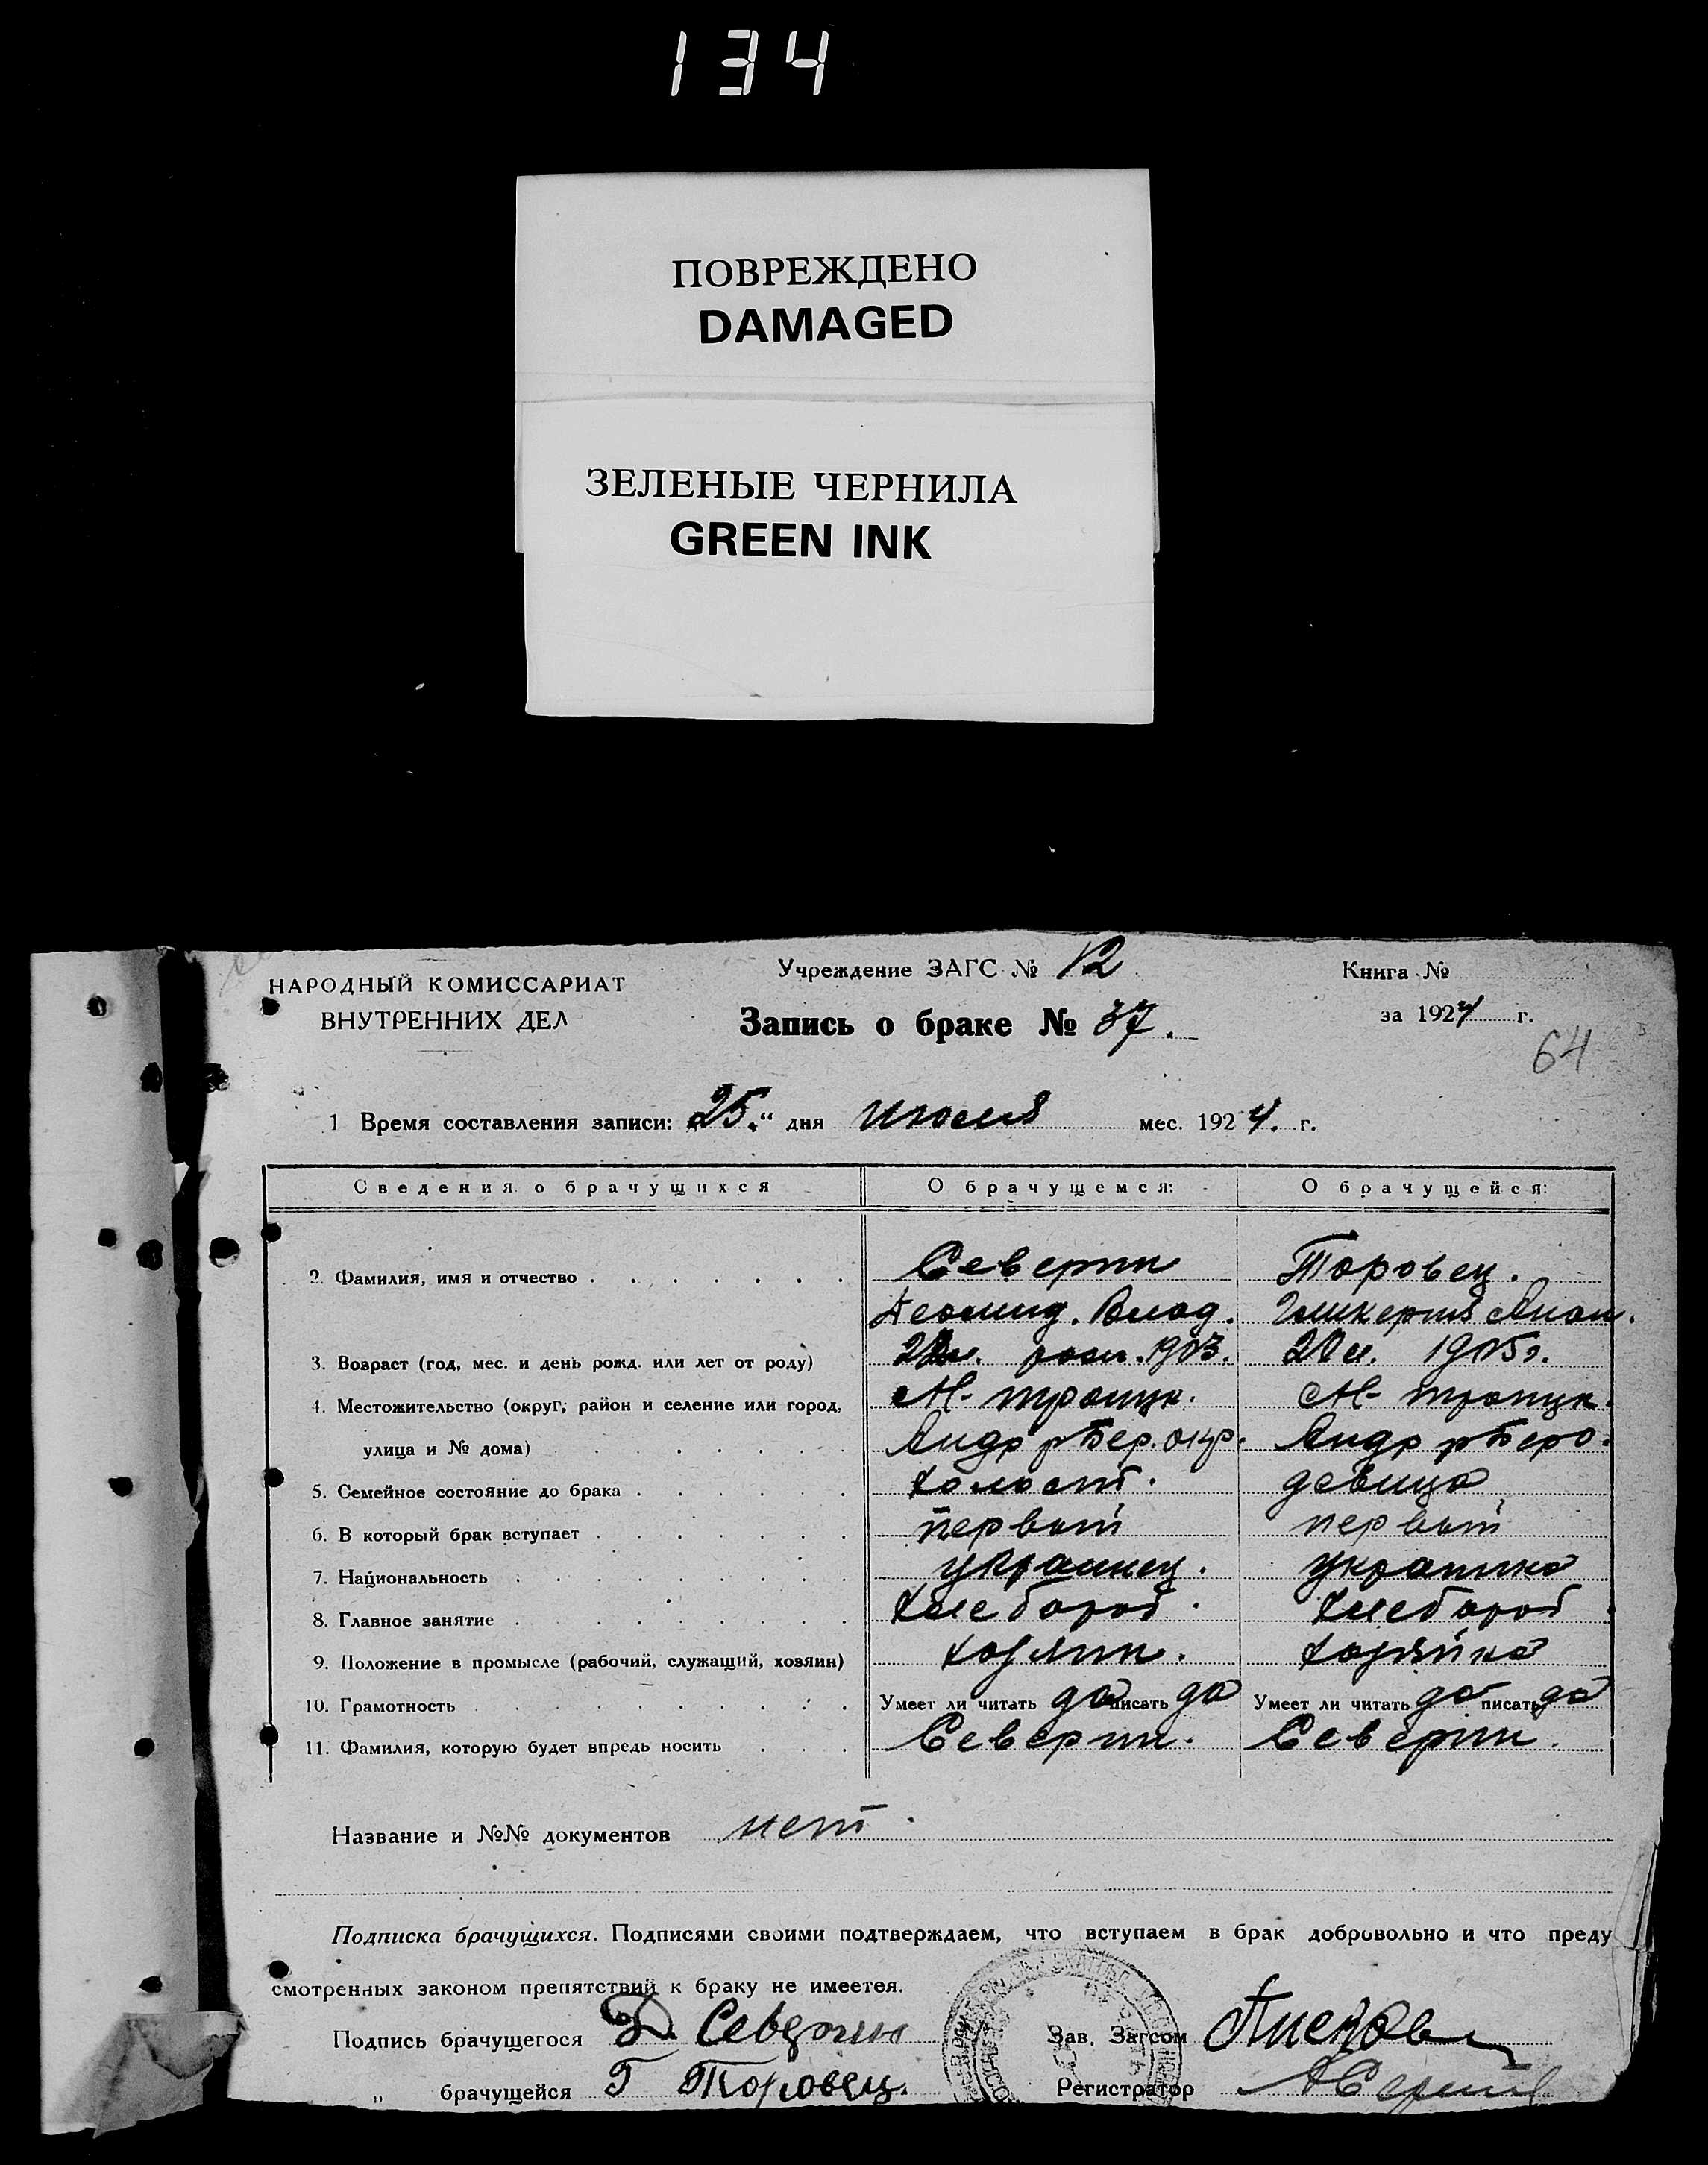 134
ПОВРЕЖДЕНО
DAMAGED
ЗЕЛЕНЫЕ ЧЕРНИЛА
GREEN INK
НАРОДНЫЙ КОМИССАРИАТ
ВНУТРЕННИХ ДЕЛ
Учреждение ЗАГС № 12
Книга №
Запись о браке № 37.
за 1924 г.
64
1 Время составления записи: „25.“ дня июля мес. 1924. г.
Сведения о брачущихся О брачущемся: О брачущейся:
2. Фамилия, имя и отчество Северин Торовец.
Леонид. Влад. Гликерия
3. Возраст (год, мес. и день рожд. или лет от роду) 1903. 20 л. 1905г.
4. Местожительство (округ, район и селение или город, М- М-
улица и № дома) Андр р Бер. окр. Андр р Беро.
5. Семейное состояние до брака холост. девица
6. В который брак вступает первый первый
7. Национальность украинец. украинка
8. Главное занятие хлебороб. хлебороб.
9. Положение в промысле (рабочий, служащий, хозяин) хозяин. хозяйка
10. Грамотность Умеет ли читать да писать да Умеет ли читать да писать да
11. Фамилия, которую будет впредь носить Северин. Северин.
Название и №№ документов нет.
Подписка брачущихся. Подписями своими подтверждаем, что вступаем в брак добровольно и что преду
смотренных законом препятствий к браку не имеетея.
Подпись брачущегося Северин Зав. Загсом
„ брачущейся Г Торовец. Регистратор